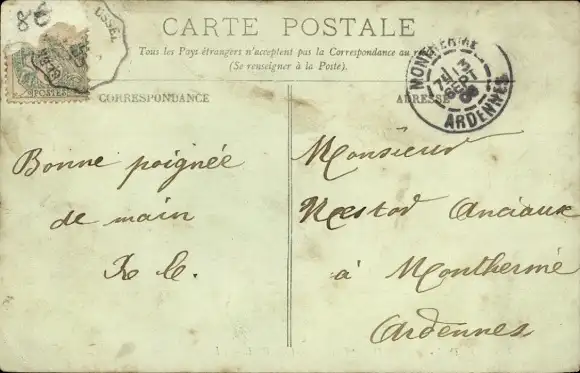 8€
USSEL
POSTES
CARTE POSTALE
Tous les Pays étrangers n'acceptent pas la Correspondance au
(Se renseigner à la Poste).
MONTHERMÉ
13
SEPT
ARDENNES
CORRESPONDANCE
ADRESSE
Bonne poignée
de main
Monsieur
Nestor Anciaux
à Monthermé
Ardennes